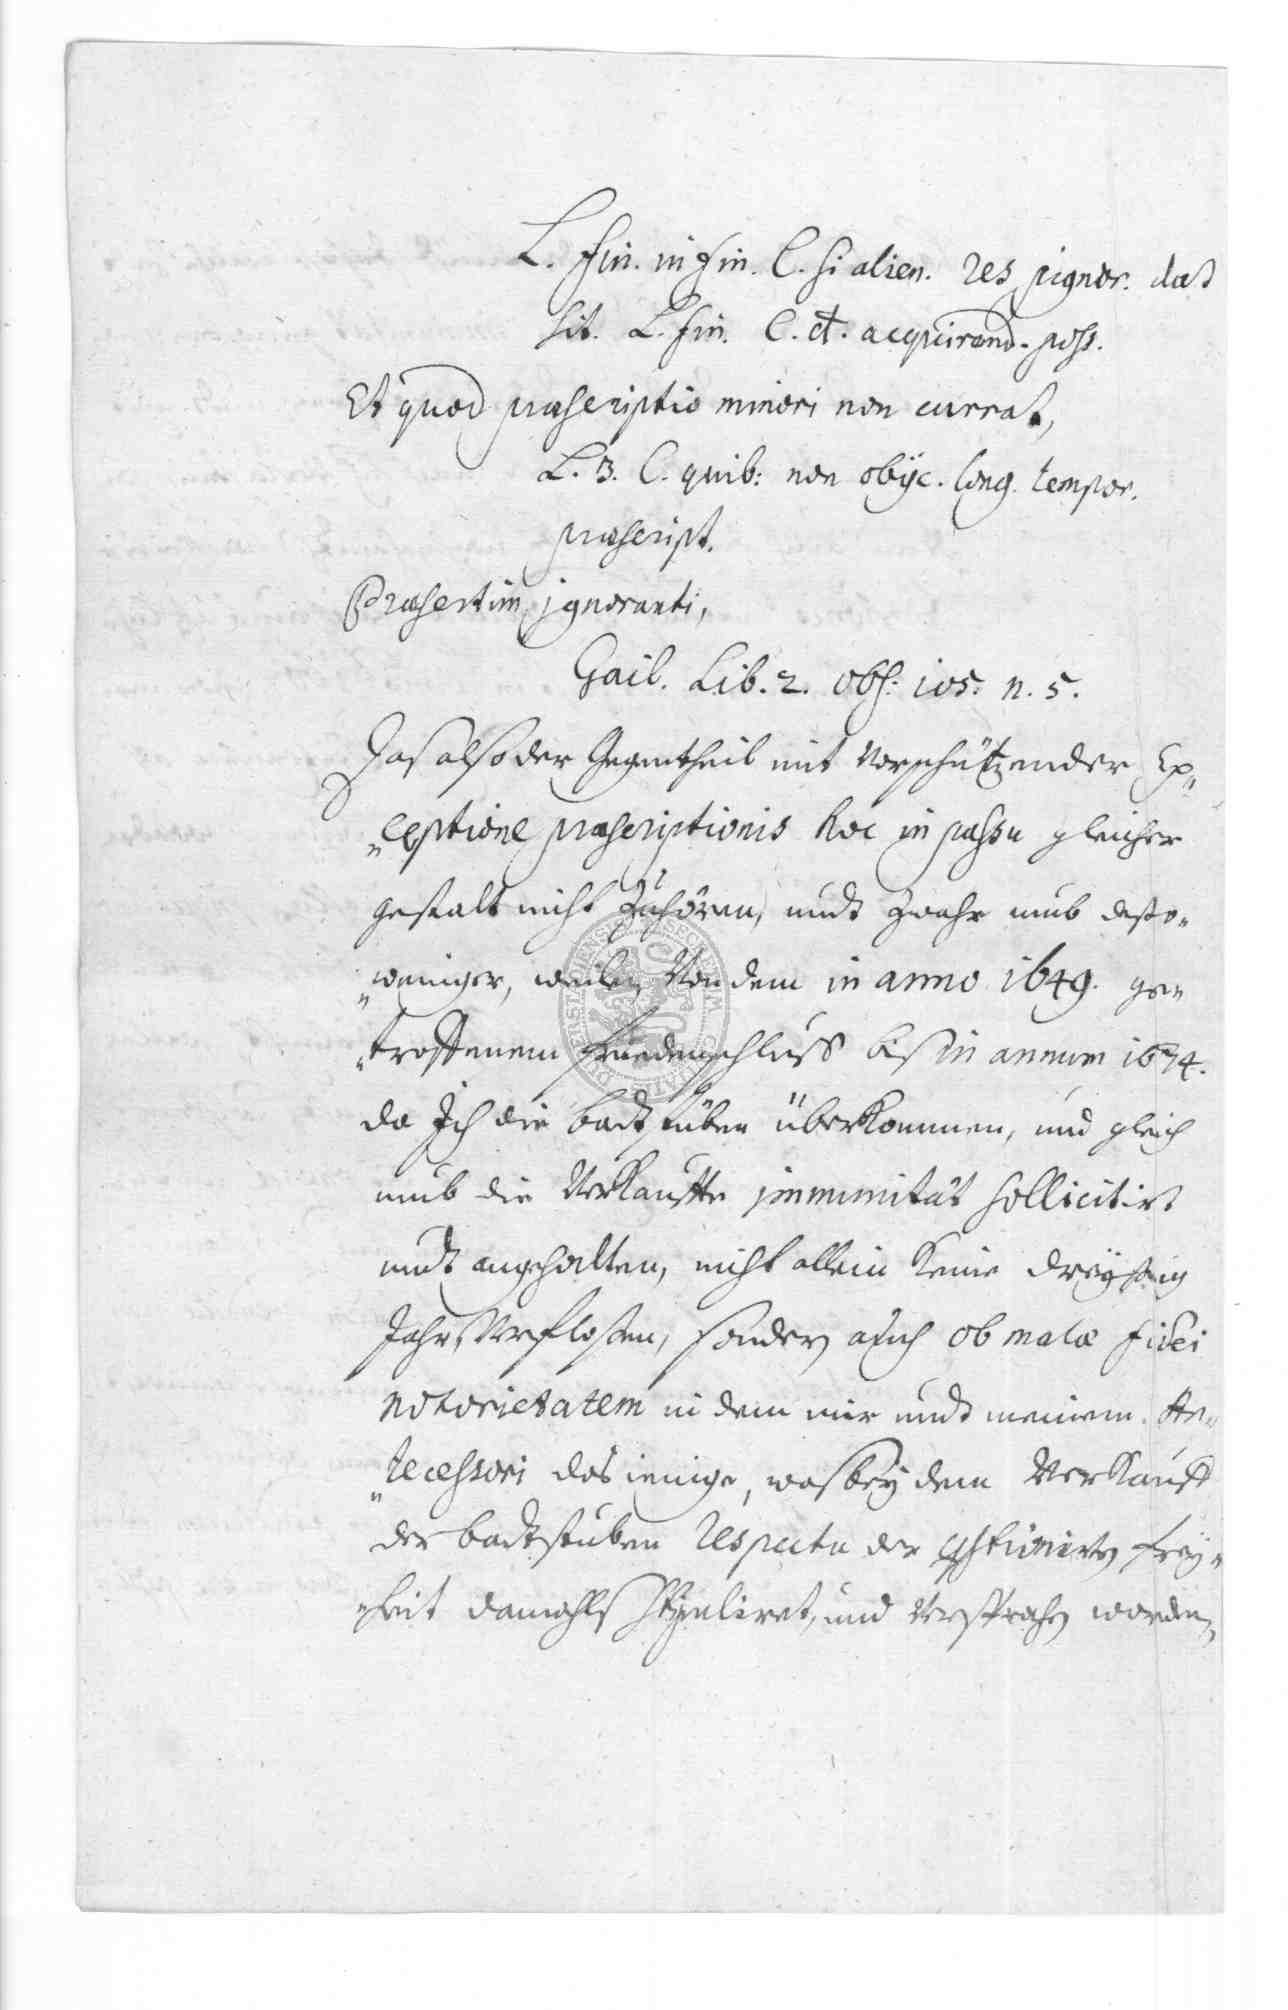 L. fin. in fin. C. si alien. res pignor. dat
sit. L. fin. C. d. acquirend. poss.
Et quod præscriptio minori non currat,
L. 3. C. quib: non obijc. long. tempor.
præscript.
Præsertim ignoranti,
Gail. Lib. 2. obs: 105. n. 5.
Das also der Gegentheil mit vorschützender Ex„
„ceptione præscriptionis hoc in passu gleicher
gestalt nicht zuhören, undt zwahr umb desto„
„weniger, weilen von dem in anno 1649. ge„
„troffenem friedenschluss bis in annum 1674.
da Ich die badtstuben überkommen, und gleich
umb die verkauffte immunität sollicitirt
undt angehalten, nicht allein keine dreyssig
Jahr verflossen, sondern auch ob malæ fidei
notorietatem in dem mir undt meinem An„
„tecessori das ienige, was bey dem Verkauff
der badtstuben respectu der frey„
„heit damahls stipuliret, und versprochen worden,
SECRETUM CIVITATIS